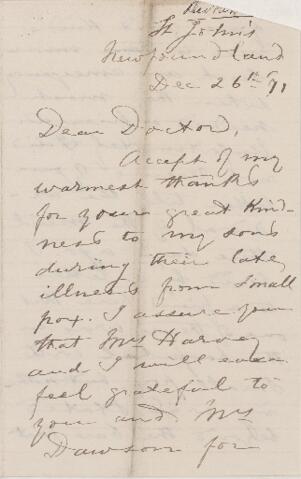 St John's
Newfoundland
Dec 26th 71
Dear Doctor,
Accept of my
warmest thanks
for your great kind-
ness to my sons
during their late
illness from Small
pox. I assure you
that Mrs Harvey
and I will ever
feel grateful to
you and Mrs
Dawson for